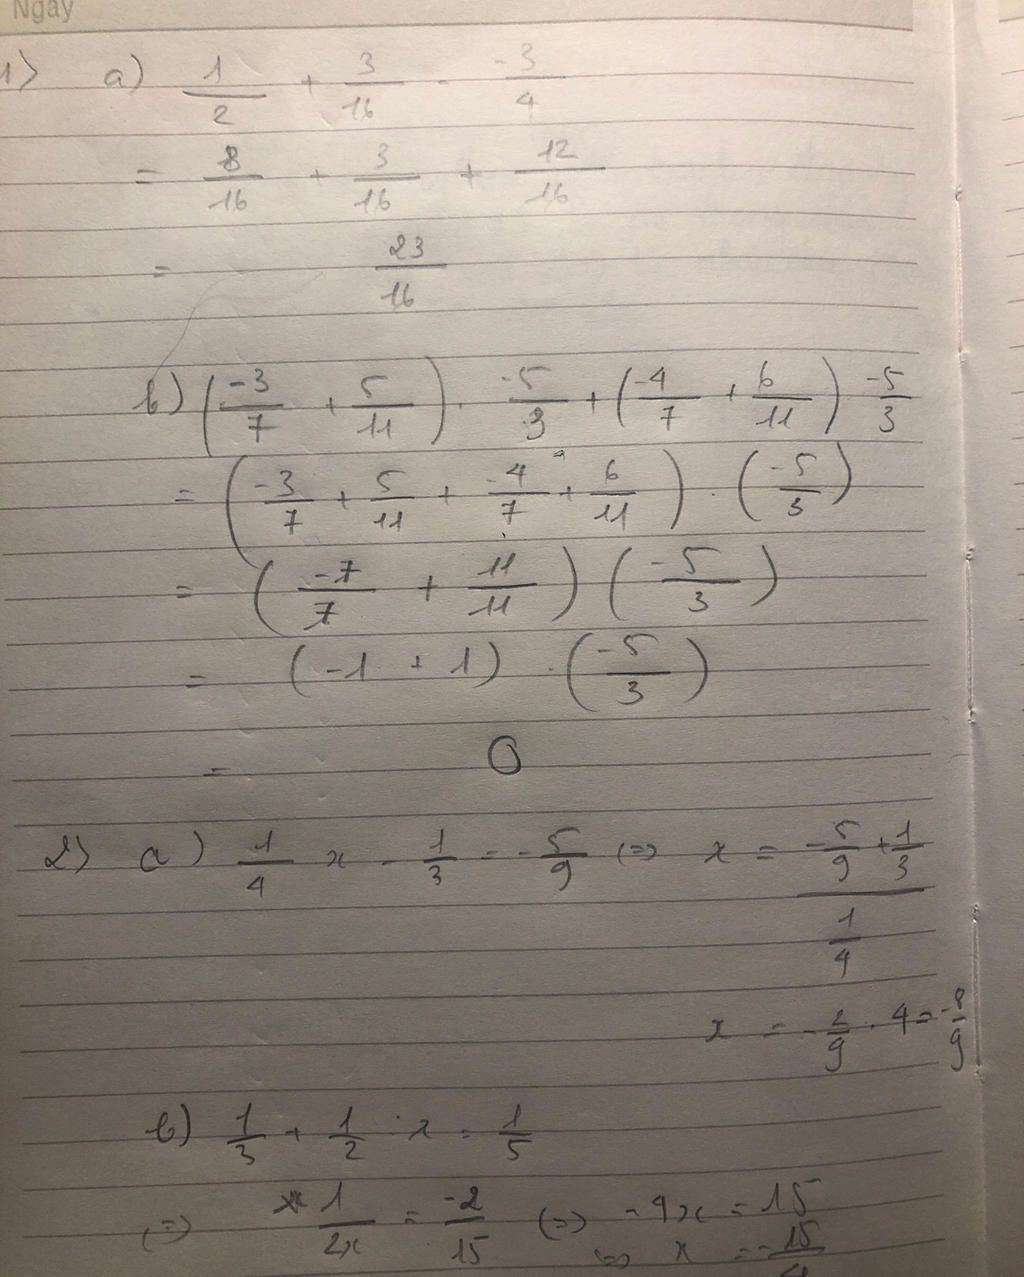 Ngày
1) a) 1/2 + 3/16 - -3/4
= 8/16 + 3/16 + 12/16
= 23/16
b) (-3/7 + 5/11) . -5/3 + (-4/7 + 6/11) -5/3
= (-3/7 + 5/11 + -4/7 + 6/11) . (-5/3)
= (-7/7 + 11/11) (-5/3)
= (-1 + 1) . (-5/3)
= 0
2) a) 1/4 x - 1/3 = -5/9 (=> x = (-5/9 + 1/3)/(1/4)
x = -2/9 . 4 = -8/9
b) 1/3 + 1/2 : x = 1/5
(=) 1/2x = -2/15 (=> -4x = 15
<=> x = -15/4